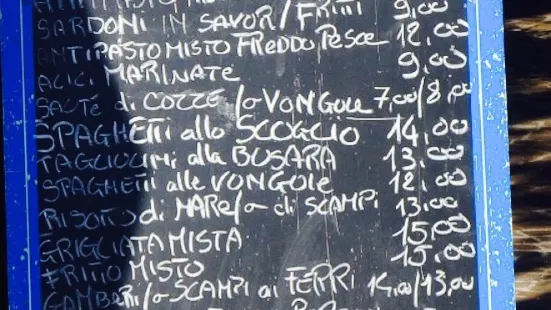 SARDONI IN SAVOR/FRITTI 9,00
ANTIPASTO MISTO FREDDO PESCE 12,00
ALICI MARINATE 9,00
SAUTÉ di COZZE/o VONGOLE 7,00/8,00
SPAGHETTI allo SCOGLIO 14,00
TAGLIOLINI alla BUSARA 13,00
SPAGHETTI alle VONGOLE 12,00
RISOTTO di MARE/o di SCAMPI 13,00
GRIGLIATA MISTA 15,00
FRITTO MISTO 15,00
GAMBERI/o SCAMPI ai FERRI 14,00/13,00